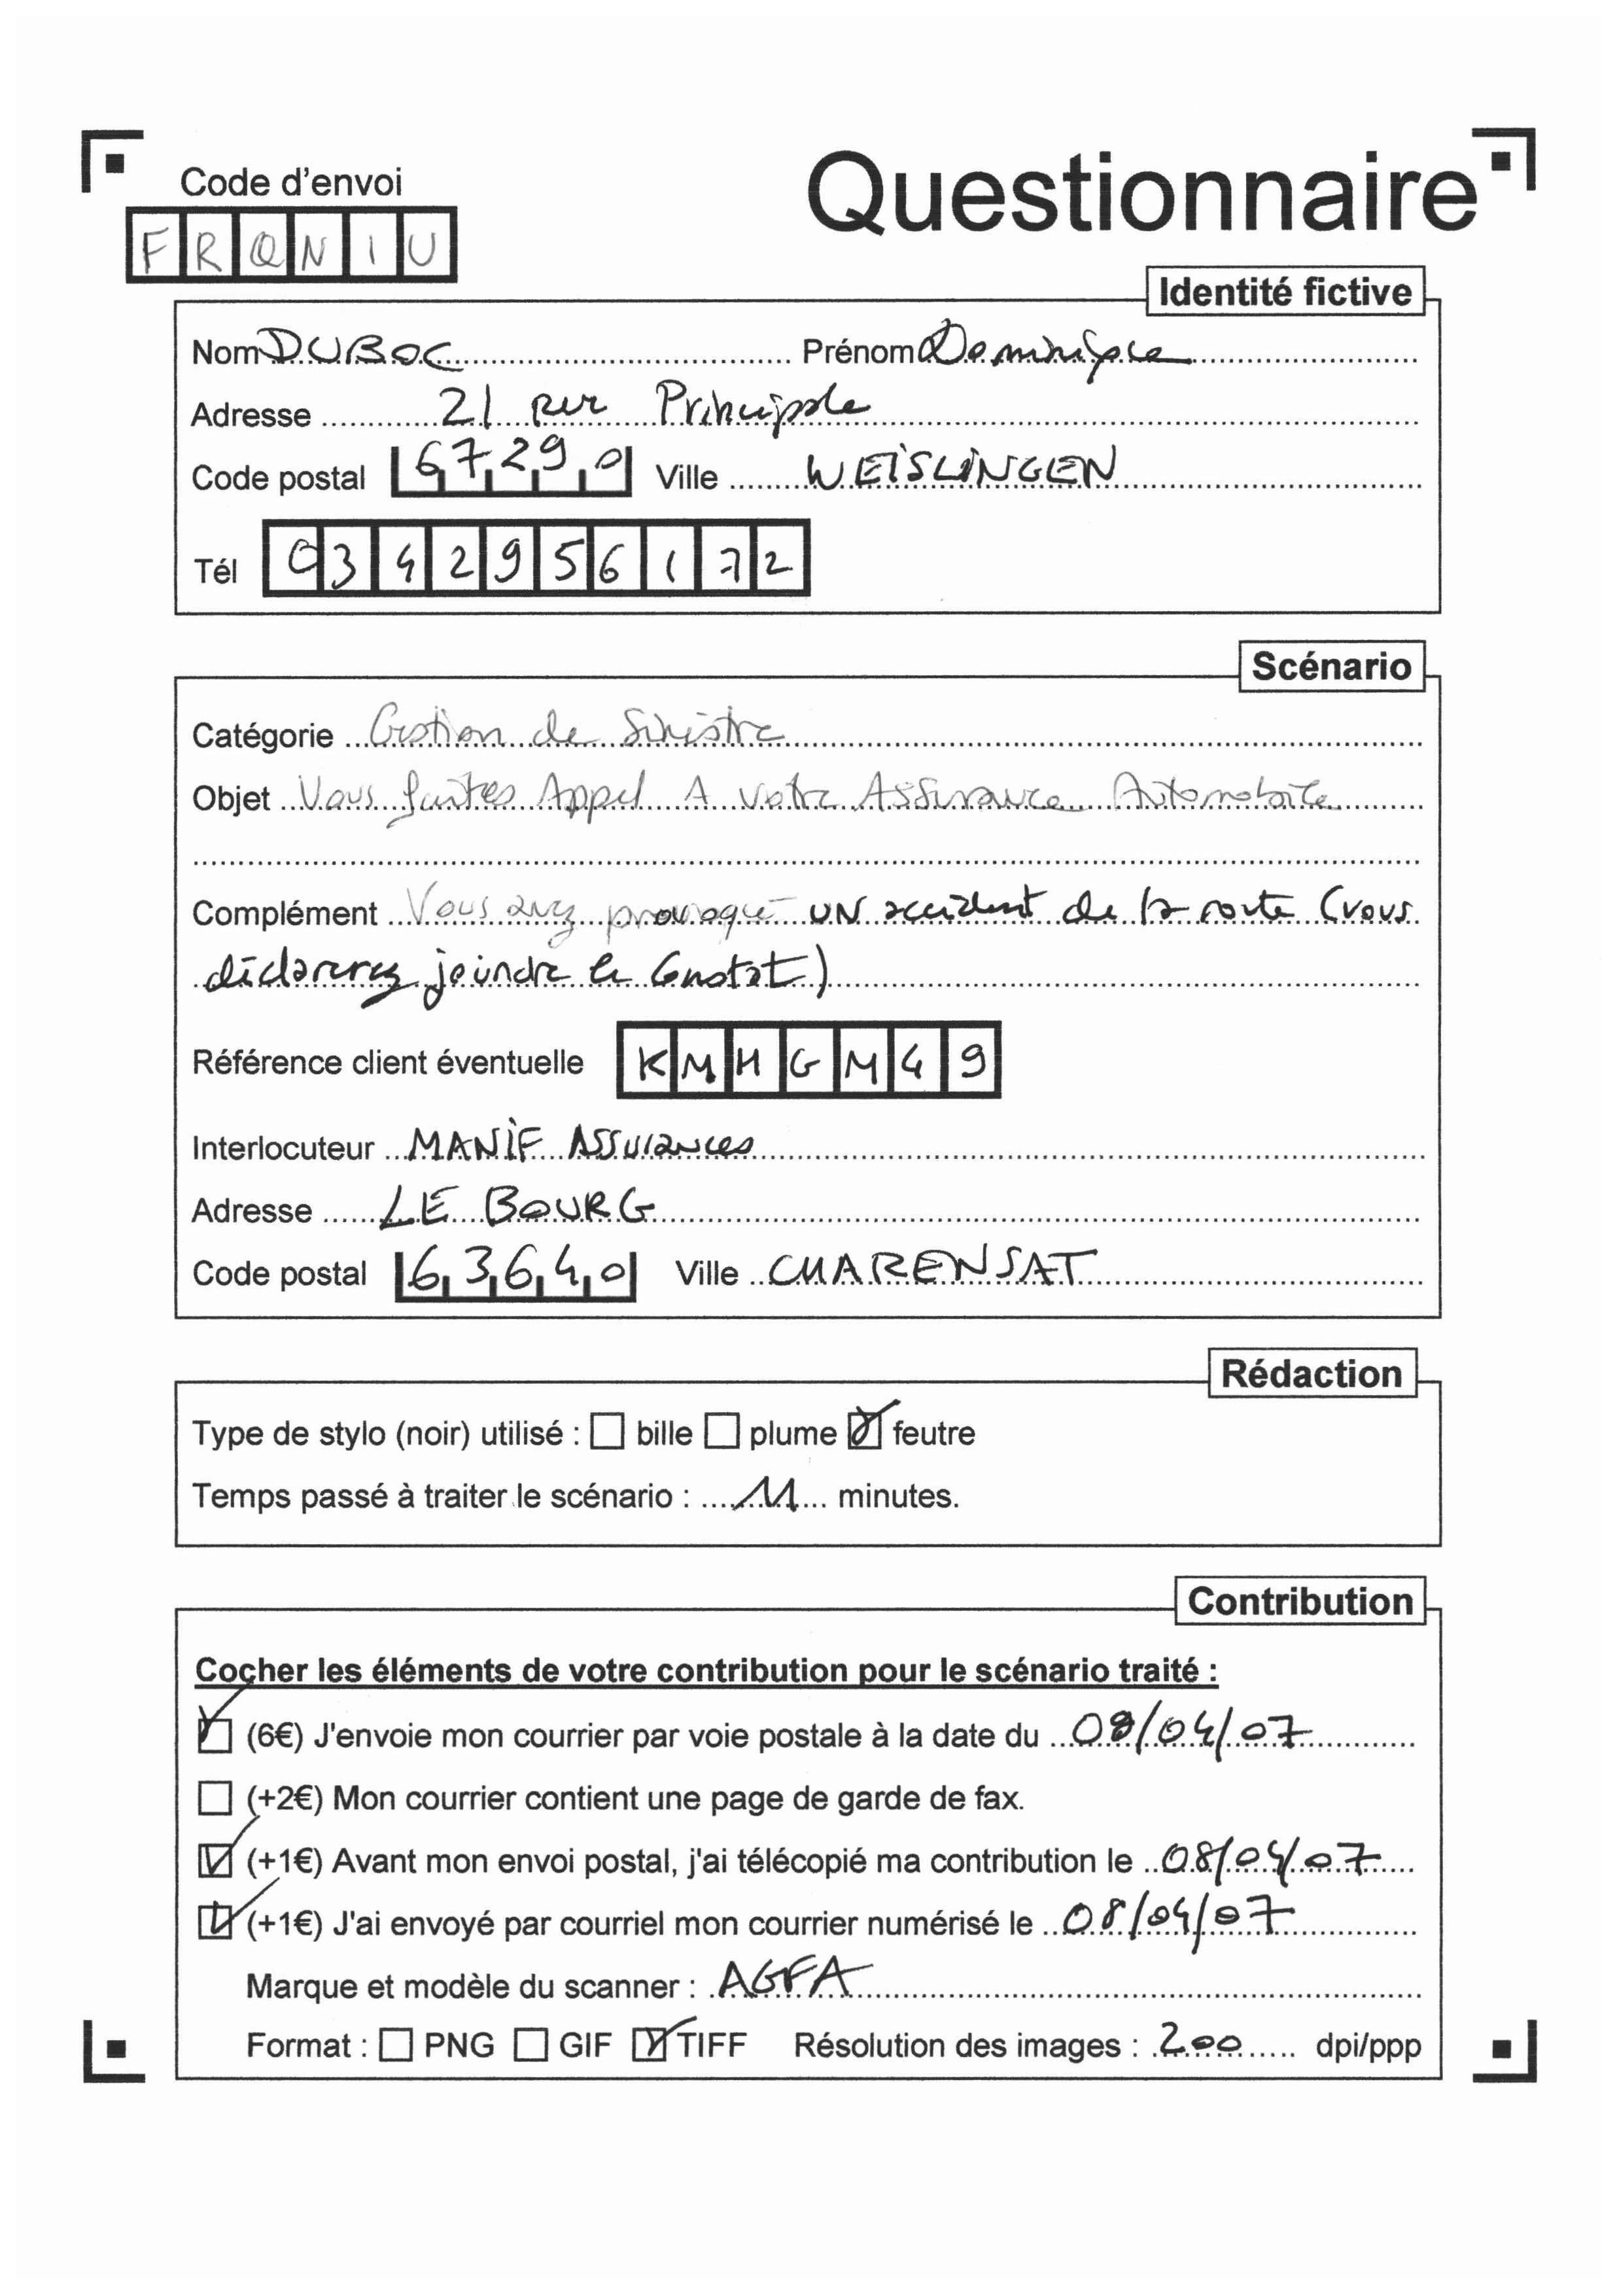 Code d'envoi
Questionnaire
FRQNIU
Identité fictive
Nom DUBOC Prénom Dominique
Adresse 21 rue Principale
Code postal 67290 Ville WEISLINGEN
Tél 0342956172
Scénario
Catégorie Gestion de Sinistre
Objet Vous faites Appel A votre Assurance Automobile
Complément Vous avez provoqué UN accident de la route (vous
déclarerez joindre le Constat)
Référence client éventuelle KMHGM49
Interlocuteur MANIF ASSURANCES
Adresse LE BOURG
Code postal 63640 Ville CHARENSAT
Rédaction
Type de stylo (noir) utilisé : bille plume feutre
Temps passé à traiter le scénario : 11 minutes.
Contribution
Cocher les éléments de votre contribution pour le scénario traité :
(6€) J'envoie mon courrier par voie postale à la date du 08/04/07
(+2€) Mon courrier contient une page de garde de fax.
(+1€) Avant mon envoi postal, j'ai télécopié ma contribution le 08/04/07
(+1€) J'ai envoyé par courriel mon courrier numérisé le 08/04/07
Marque et modèle du scanner : AGFA
Format : PNG GIF TIFF Résolution des images : 200 dpi/ppp